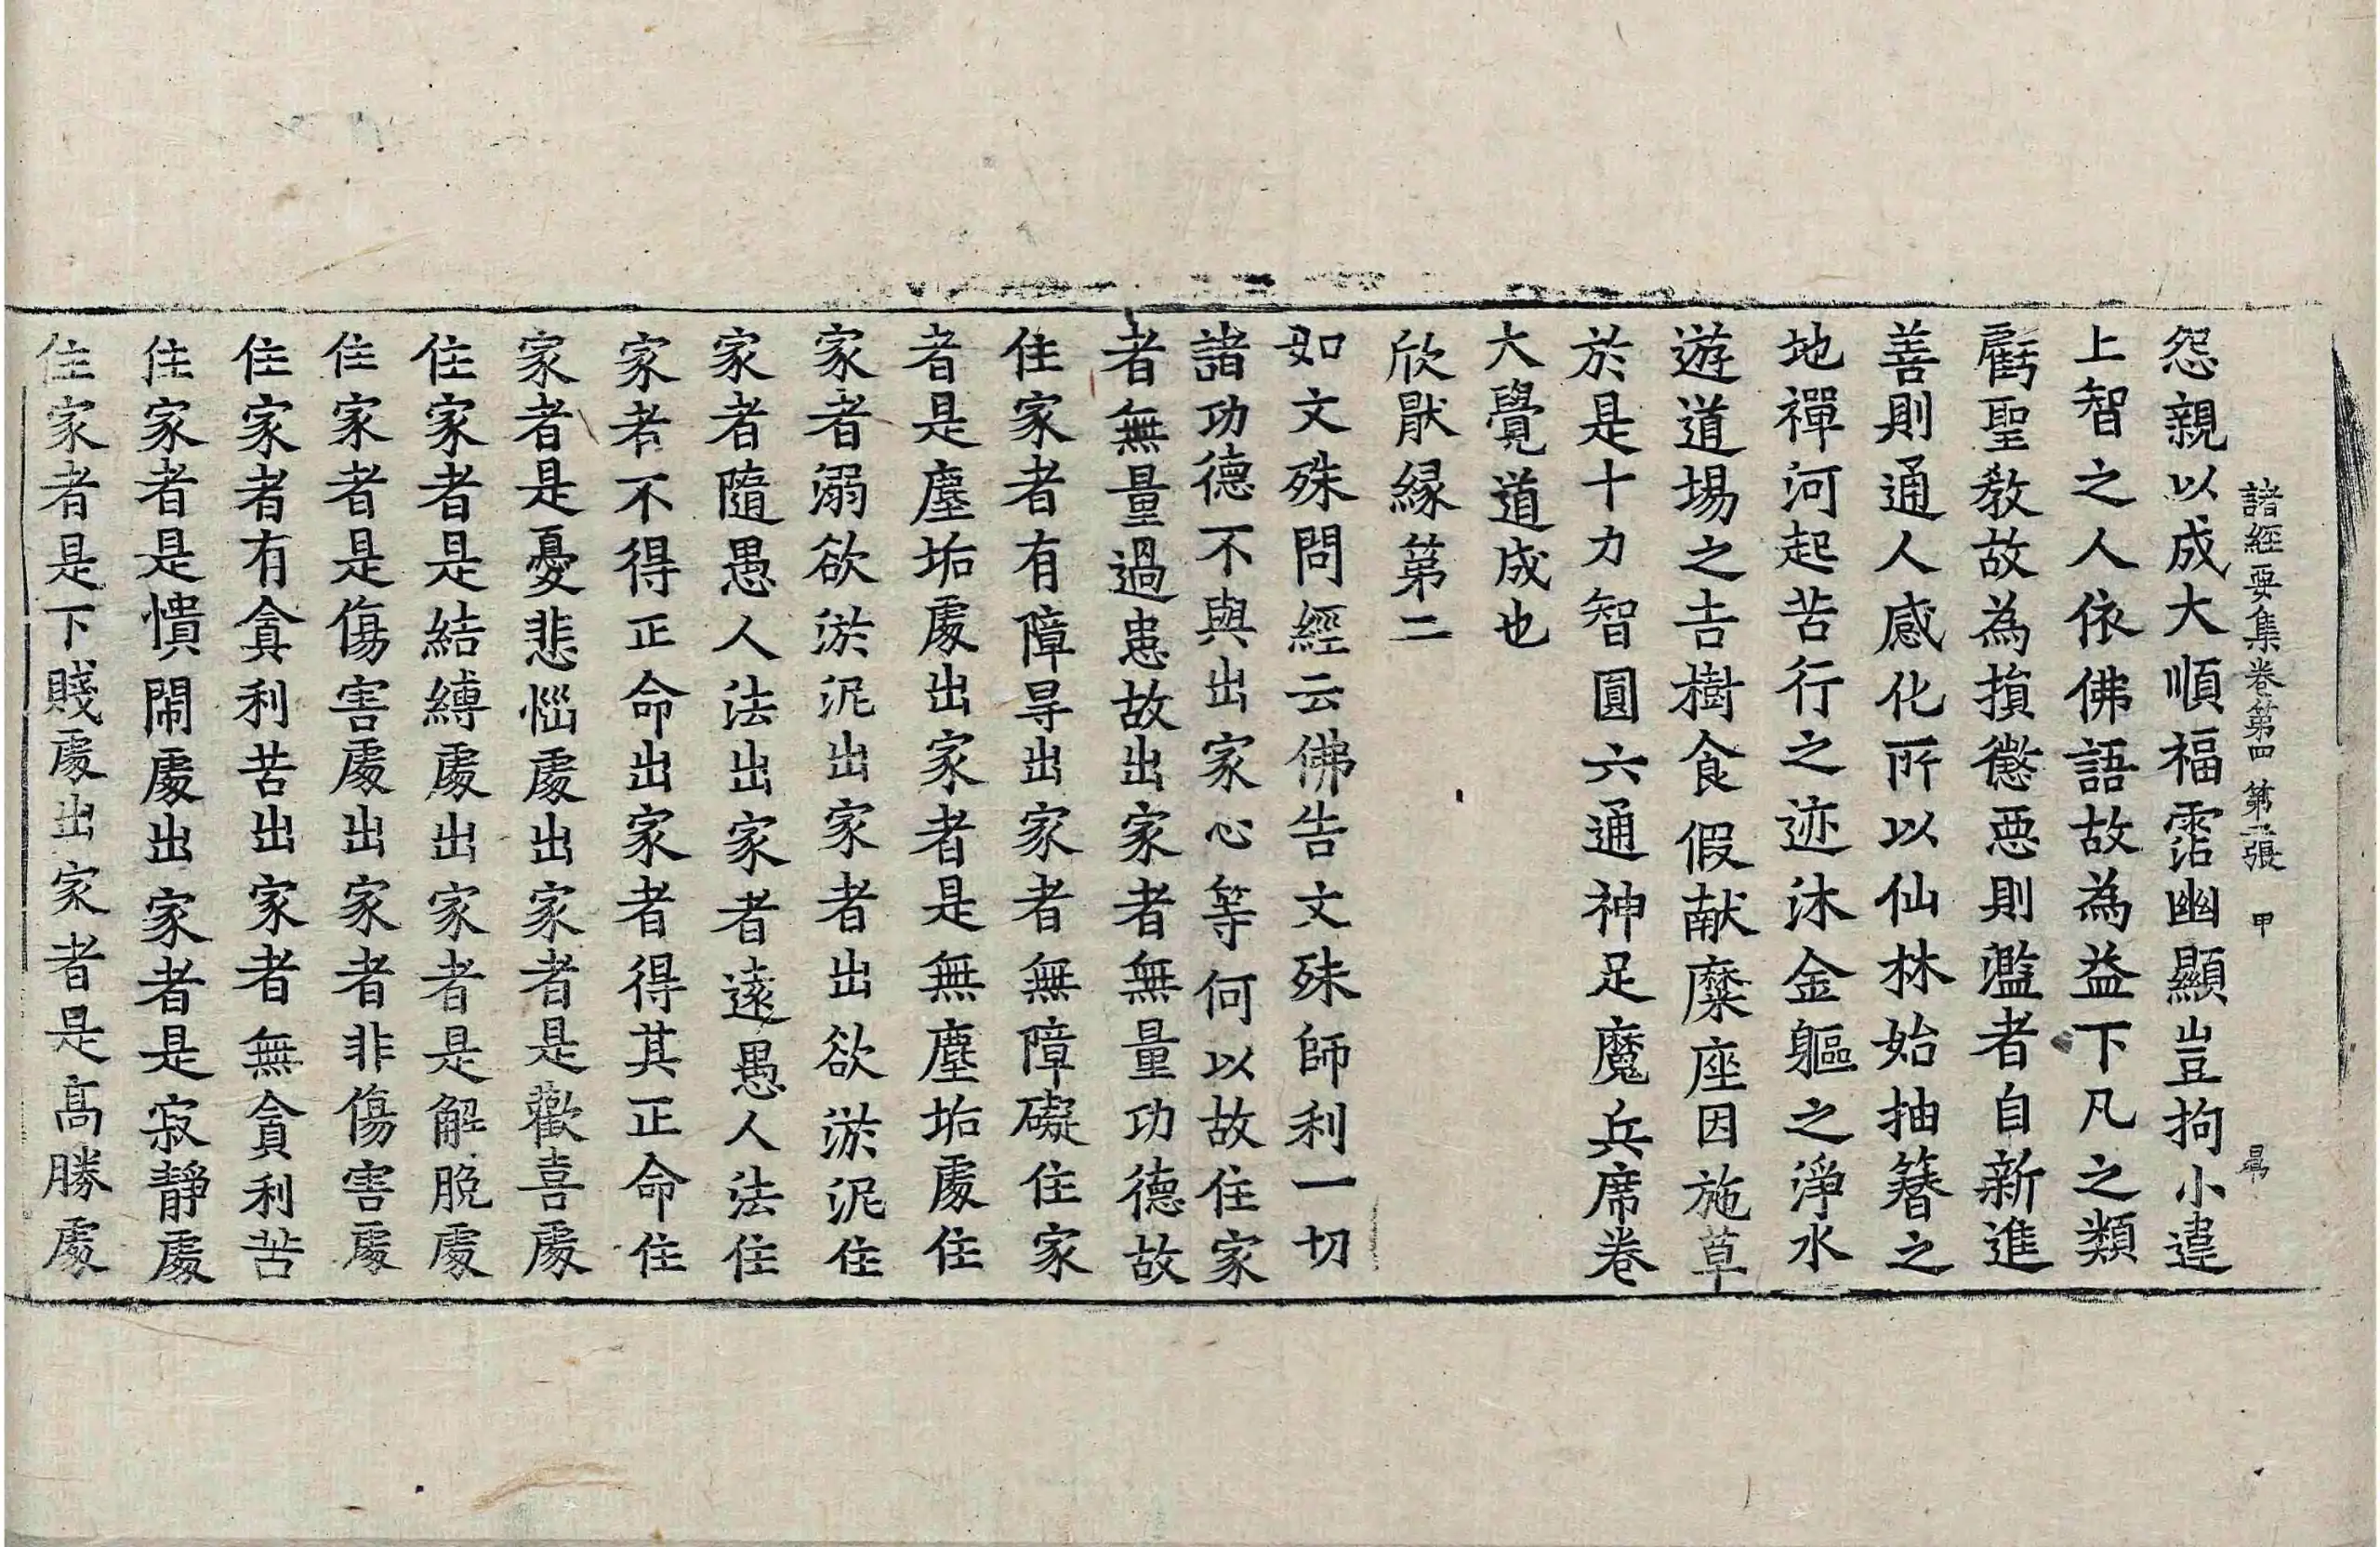 諸經要集卷第四 第二張 甲
怨親以成大順福霑幽顯豈拘小違
上智之人依佛語故為益下凡之類
虧聖教故為損懲惡則濫者自新進
善則通人感化所以仙林始抽簪之
地禪河起苦行之迹沐金軀之淨水
遊道場之吉樹食假献糜座因施草
於是十力智圓六通神足魔兵席卷
大覺道成也
欣猒緣第二
如文殊問經云佛告文殊師利一切
諸功德不與出家心等何以故住家
者無量過患故出家者無量功德故
住家者有障㝵出家者無障礙住家
者是塵垢處出家者是無塵垢處住
家者溺欲淤泥出家者出欲淤泥住
家者隨愚人法出家者遠愚人法住
家者不得正命出家者得其正命住
家者是憂悲惱處出家者是歡喜處
住家者是結縛處出家者是解脫處
住家者是傷害處出家者非傷害處
住家者有貪利苦出家者無貪利苦
住家者是憒閙處出家者是寂靜處
住家者是下賤處出家者是高勝處